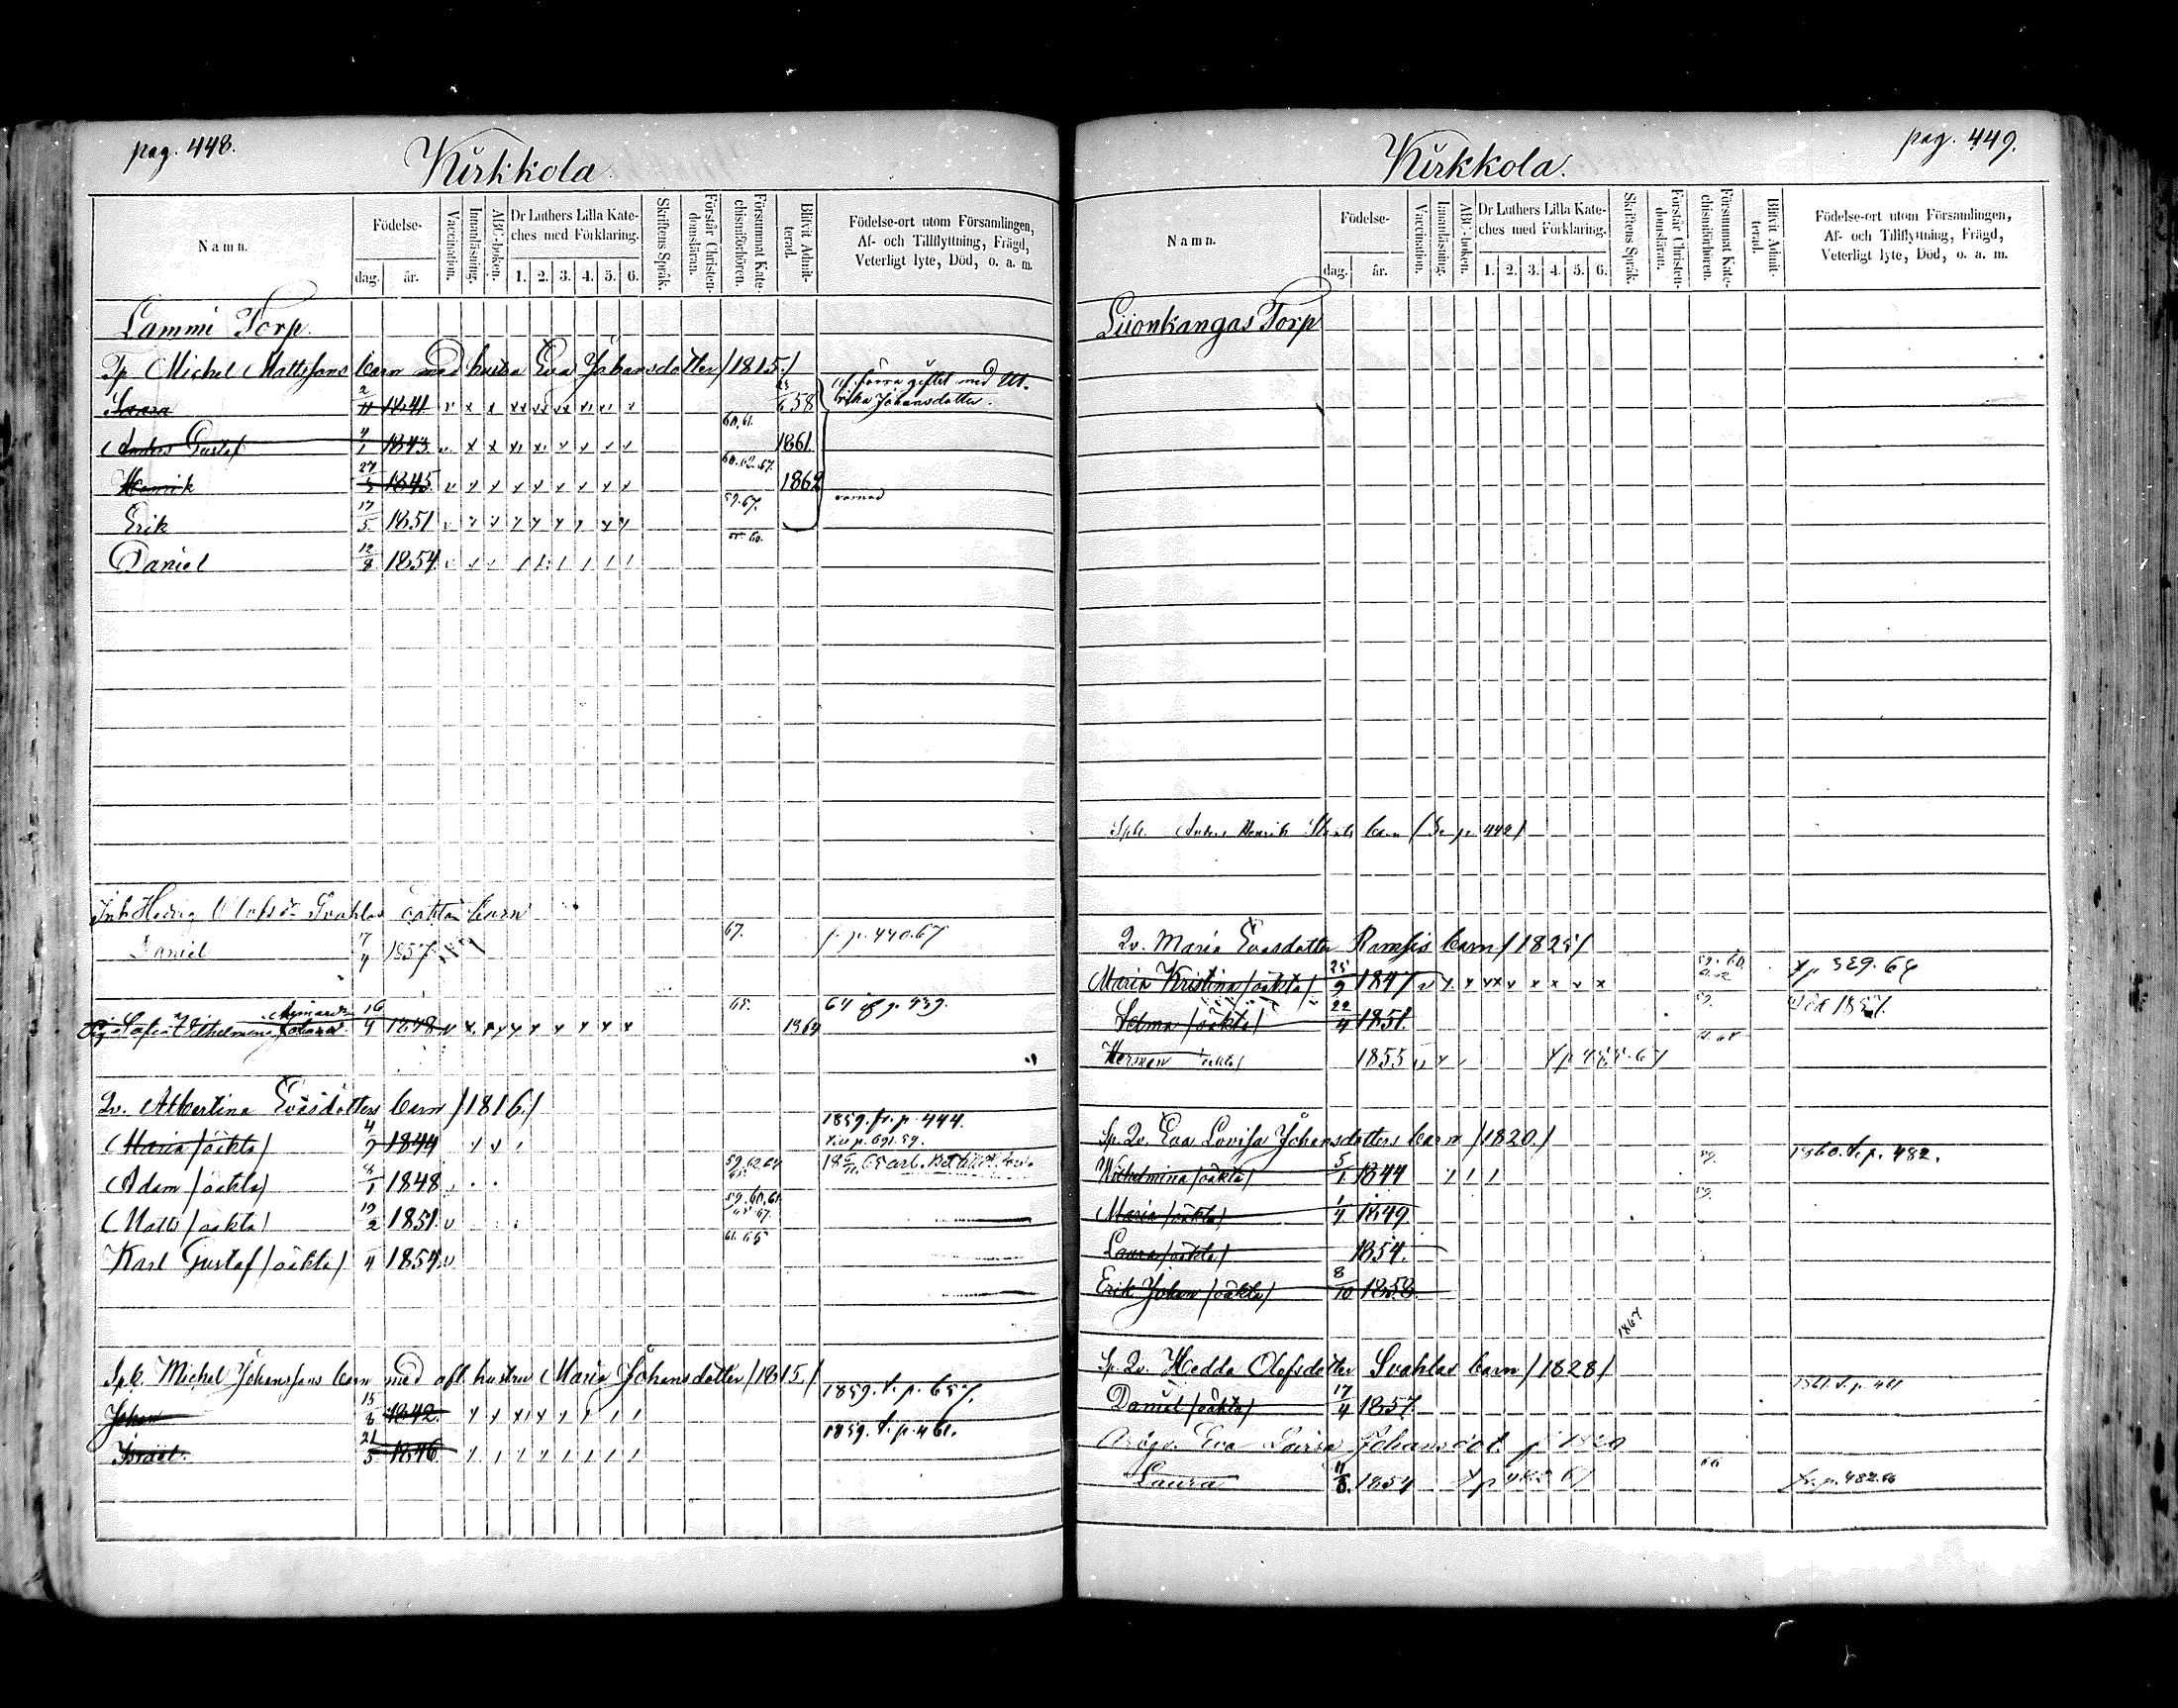 pag. 448.
Kirkkola
Namn.
Födelse-
dag.
år.
Vaccination.
Innanläsning.
ABC-boken.
Dr Luthers Lilla Kate-
ches med Förklaring.
1. 2. 3. 4. 5. 6.
Skriftens Språk.
Förstår Christen-
domsläran.
Försummat Kate-
chismiförhören.
Blifvit Admit-
terad.
Födelse-ort utom Församlingen,
Af- och Tillflyttning, Frägd,
Veterligt lyte, Död, o. a. m.
Lammi Torp.
Tp Michel Mattssons barn med hustru Eva Johansdotter /1815/
Saara 2/11 1841 58 af förra giftet med Ul-
rika Johansdotter.
Anders Gustaf 4/1 1843 60.61. 1861
Henrik 27/5 1845 60.62.67. 1862
Erik 17/5 1851 59.67.
Daniel 12/8 1854 60.
Inh Hedvig Olofsd. Svahlas oäkta barn
Daniel 17/4 1857 67. f. p. 440.67
Sofia Wilhelmina 16/4 1848 65. 1864 64 p. 439.
Qv. Albertina Evasdotters barn /1816/
Maria /oäkta/ 4/9 1844 1859. fr. p. 444.
p. 691.59.
Adam /oäkta/ 8/1 1848 59.62.64
Matts /oäkta/ 19/2 1851 59.60.61.
65.67.
Karl Gustaf /oäkta/ 4 1854 61.65
Sph. Michel Johanssons barn med afl. hustru Maria Johansdotter /1815/
Johan 15/8 1842 1859. t. p. 657.
Israel 21/5 1846 1859. t. p. 461.
pag. 449.
Kirkkola.
Namn.
Födelse-
dag.
år.
Vaccination.
Innanläsning.
ABC-boken.
Dr Luthers Lilla Kate-
ches med Förklaring.
1. 2. 3. 4. 5. 6.
Skriftens Språk.
Förstår Christen-
domsläran.
Försummat Kate-
chismiförhören.
Blifvit Admit-
terad.
Födelse-ort utom Församlingen,
Af- och Tillflyttning, Frägd,
Veterligt lyte, Död, o. a. m.
Liionkangas Torp
Sph. Anders Henrik barn /Se p. 442/
Qv. Maria Evasdotter Ramsis barn /1825/
Maria Kristina /oäkta/ 25/9 1847 59.60. t p 329.64
Selma /oäkta/ 22/4 1851 59. Död 1857.
Herman oäkta/ 1855
Sp. Qv. Eva Lovisa Johansdotters barn /1820/
Wilhelmina /oäkta/ 5/1 1844 59. 1860. t. p. 482.
Maria /oäkta/ 1/4 1849 59.
Laura /oäkta/ 1854.
Erik Johan /oäkta/ 8/10 1858
1867
Sp. Qv. Hedda Olofsdotter Svahlas barn /1828/
Daniel /oäkta/ 17/4 1857 1861. t. p. 461
Eva Lovisa Johansdot f 1820
Laura 11/8 1854 66 fr. p. 482.66